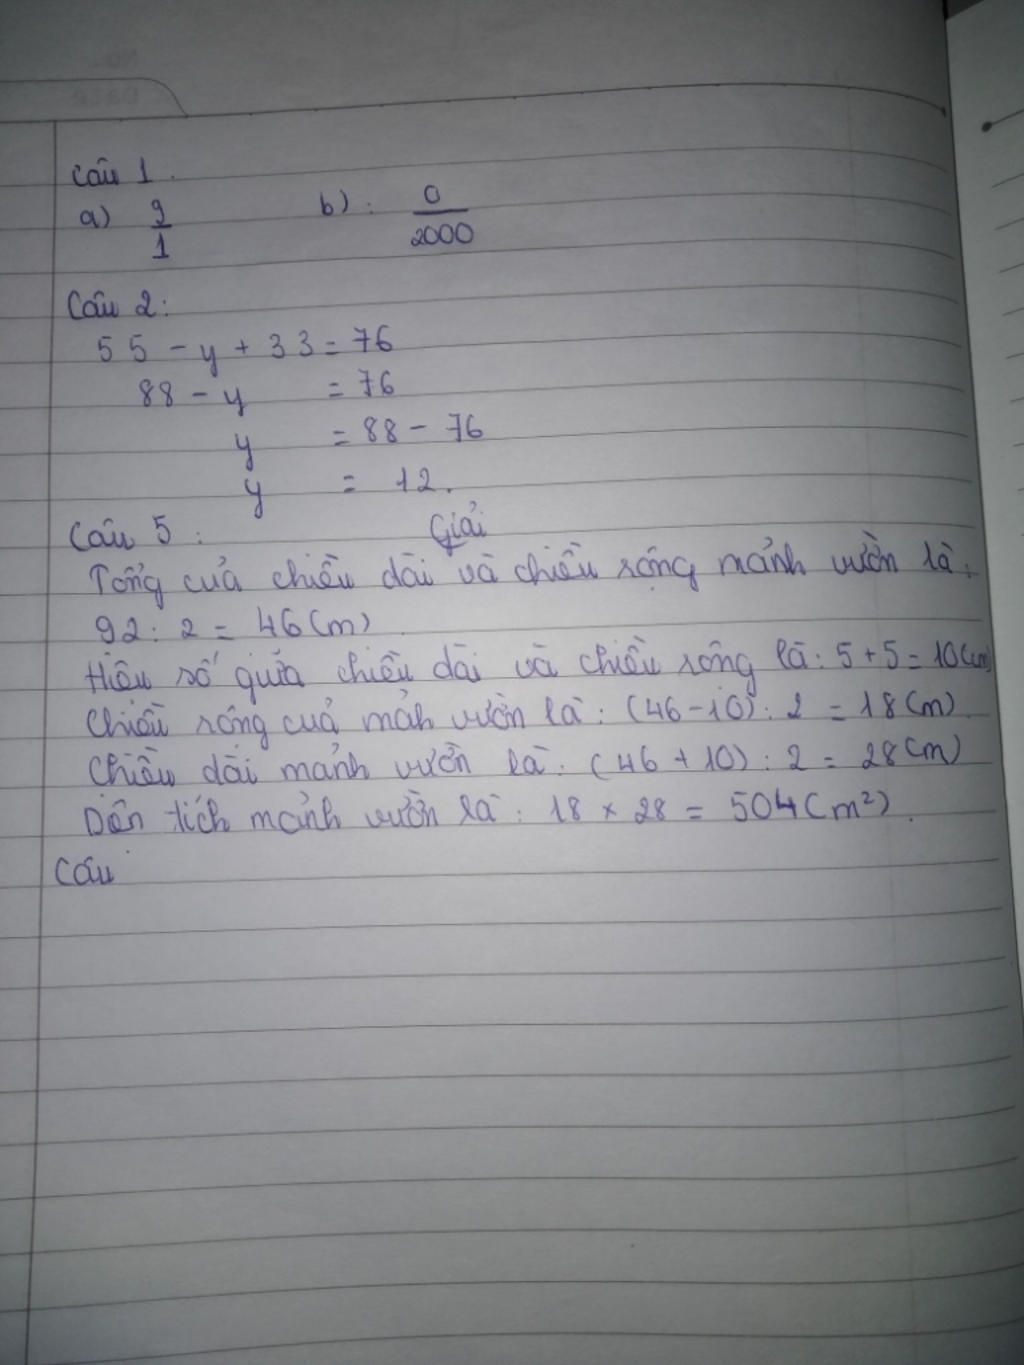 Câu 1.
a) 9/1 b): 0/2000
Câu 2:
55 - y + 33 = 76
88 - y = 76
y = 88 - 76
y = 12.
Câu 5: Giải
Tổng của chiều dài và chiều rộng mảnh vườn là:
92 : 2 = 46 (m)
Hiệu số giữa chiều dài và chiều rộng là: 5 + 5 = 10 (m)
Chiều rộng của mảh vườn là: (46 - 10) : 2 = 18 (m)
Chiều dài mảnh vườn là: (46 + 10) : 2 = 28 (m)
Diện tích mảnh vườn là: 18 × 28 = 504 (m²).
Câu